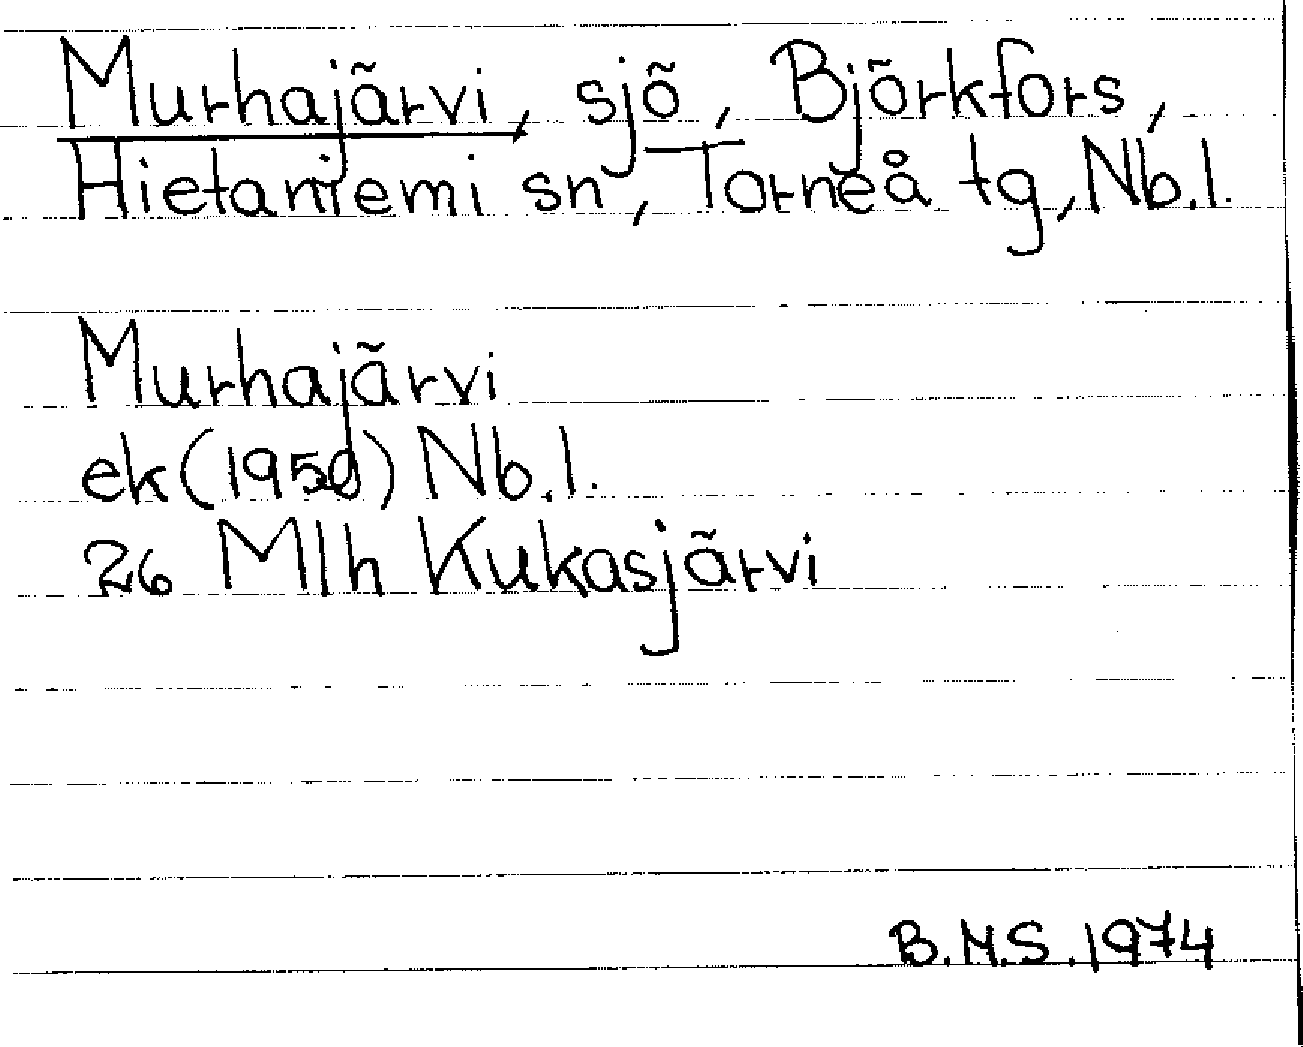 Murhajärvi, sjö, Björkfors,
Hietaniemi sn, Torneå tg, Nb.l.
Murhajärvi
ek (1950) Nb.l.
26 Mlh Kukasjärvi
B.M.S. 1974